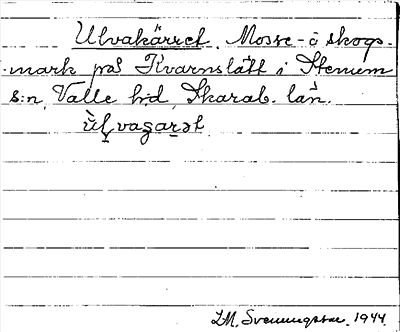 Ulvakärret. Mosse- o skogs-
mark på Kvarnslätt i Stenum
s:n, Valle hd, Skarab. län.
J.M. Svenungsson. 1944.